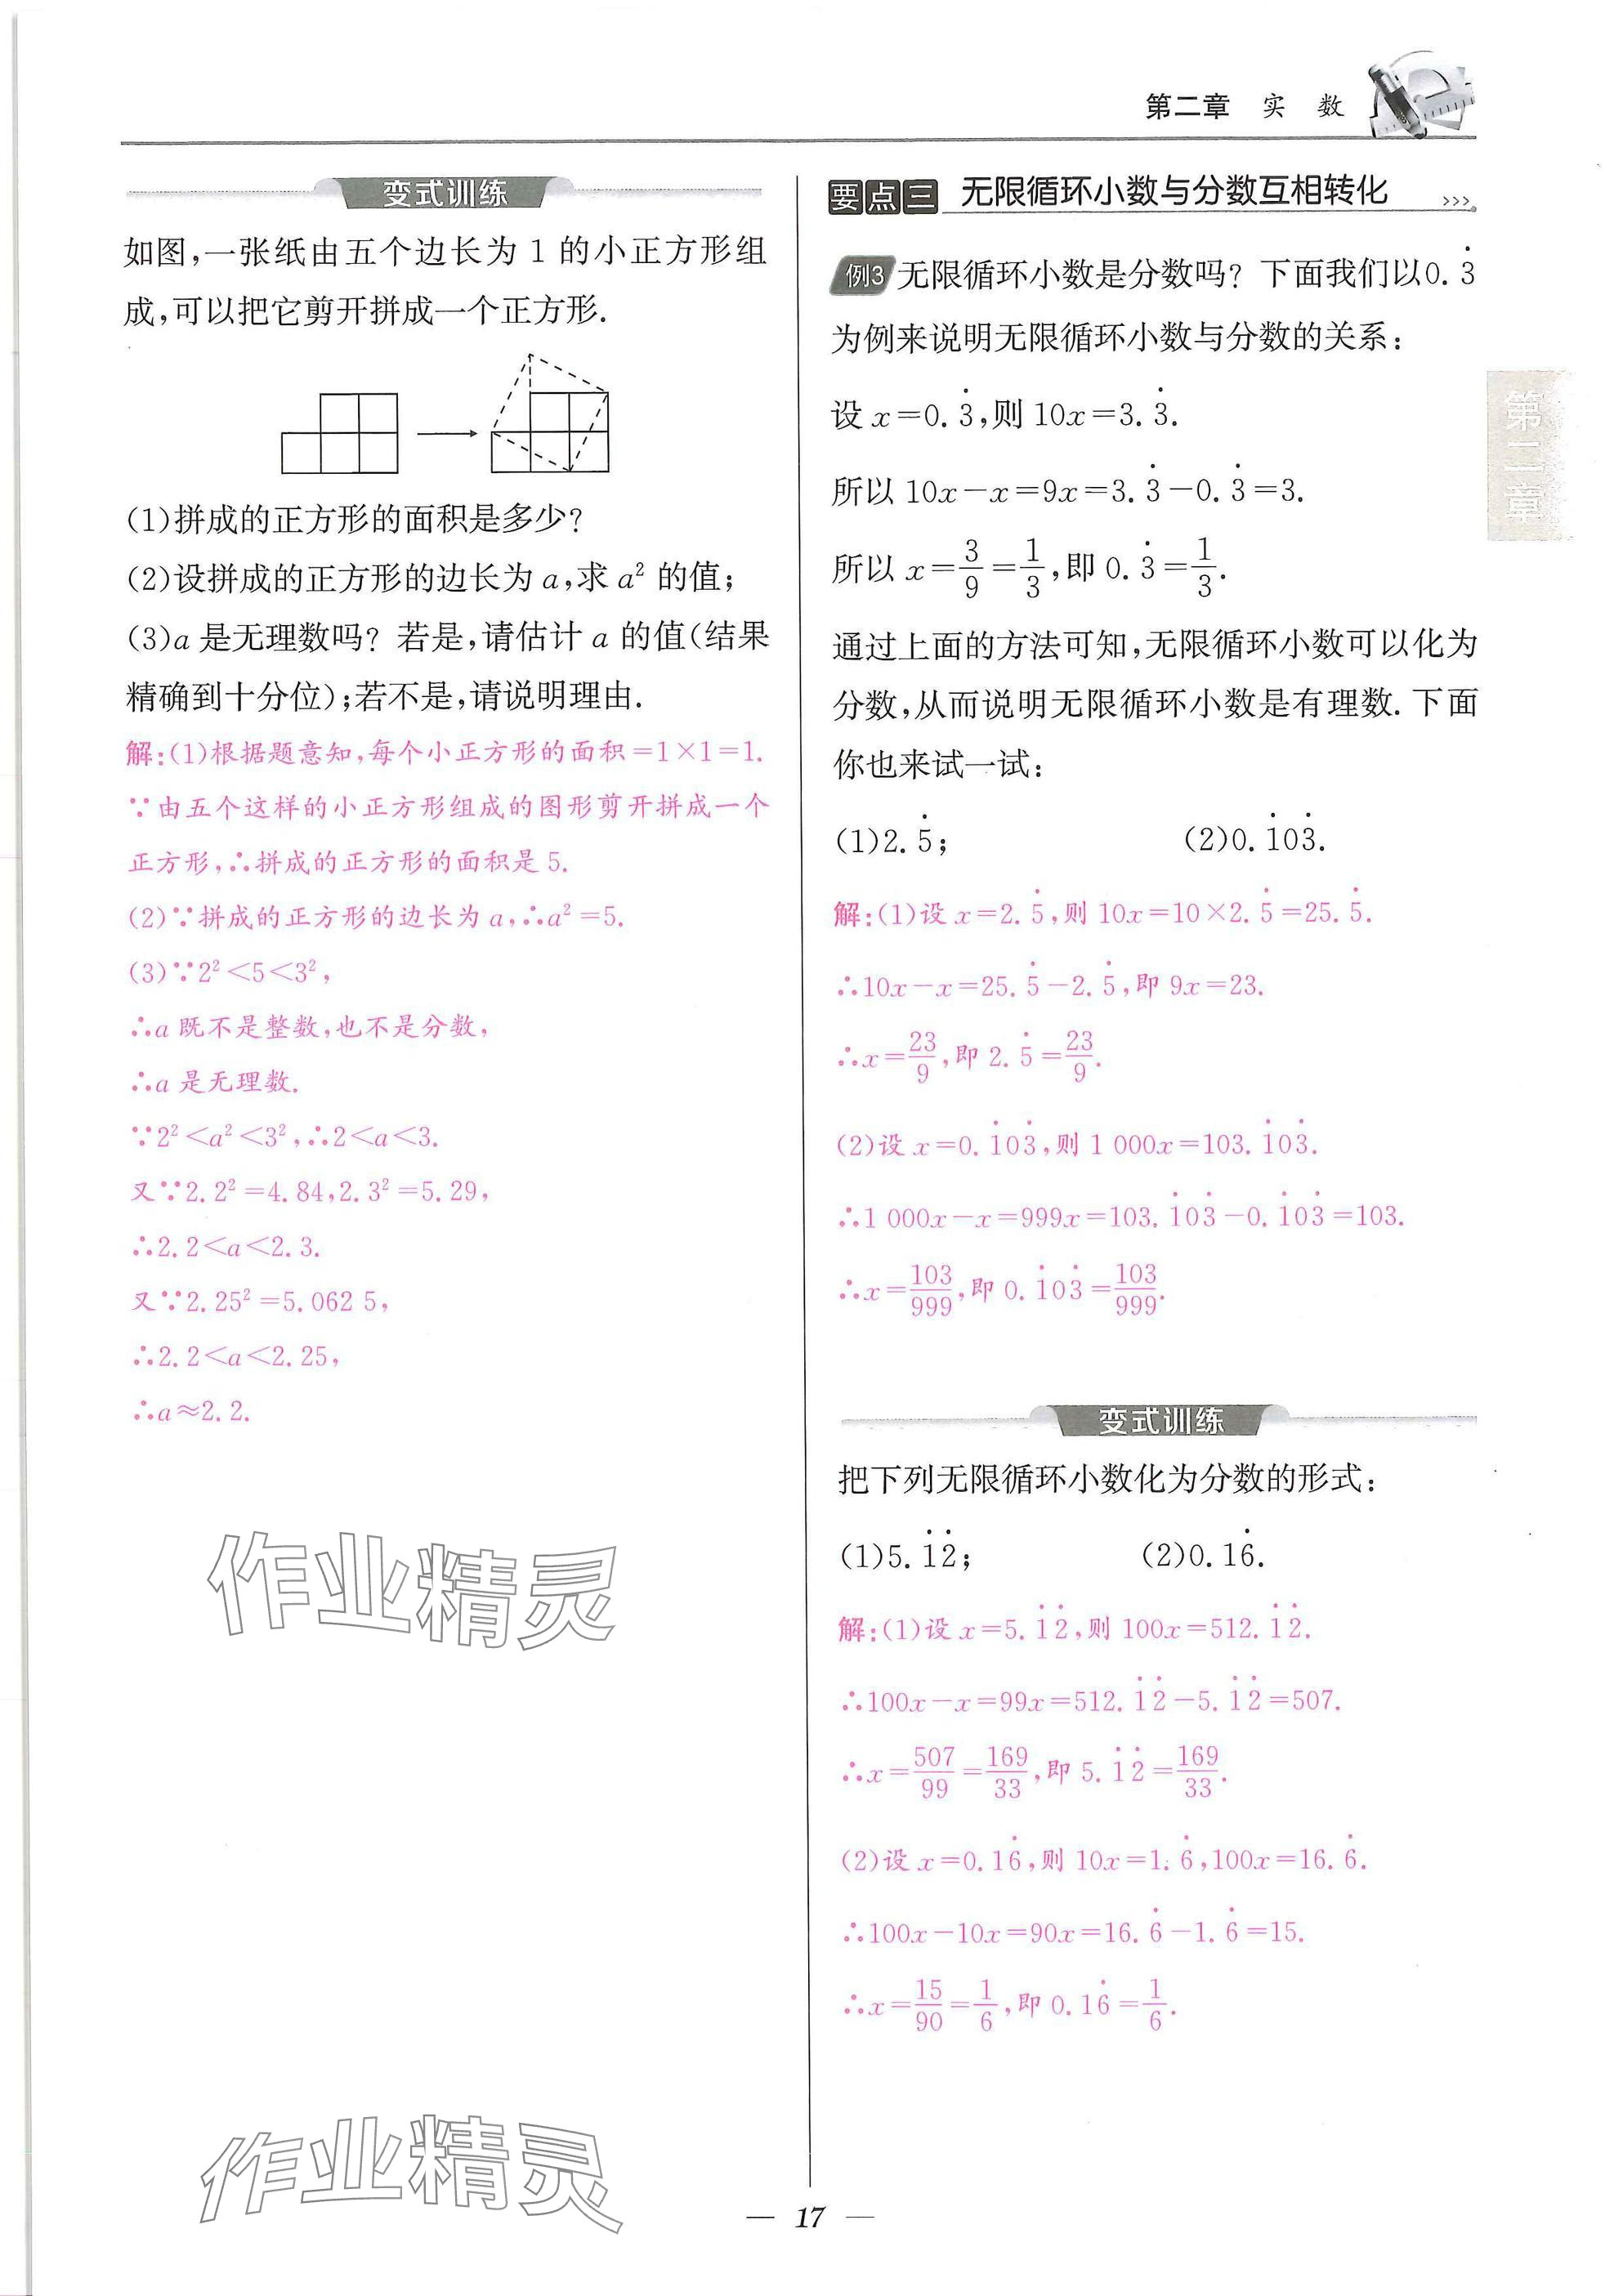 第二章 实 数
变式训练
如图,一张纸由五个边长为 1 的小正方形组
成,可以把它剪开拼成一个正方形.
(1)拼成的正方形的面积是多少?
(2)设拼成的正方形的边长为 a,求 a² 的值;
(3)a 是无理数吗? 若是,请估计 a 的值(结果
精确到十分位);若不是,请说明理由.
解:(1)根据题意知,每个小正方形的面积=1×1=1.
∵由五个这样的小正方形组成的图形剪开拼成一个
正方形,∴拼成的正方形的面积是 5.
(2)∵拼成的正方形的边长为 a,∴a²=5.
(3)∵2²<5<3²,
∴a 既不是整数,也不是分数,
∴a 是无理数.
∵2²<a²<3²,∴2<a<3.
又∵2.2²=4.84,2.3²=5.29,
∴2.2<a<2.3.
又∵2.25²=5.062 5,
∴2.2<a<2.25,
∴a≈2.2.
要点三 无限循环小数与分数互相转化 >>>
例3 无限循环小数是分数吗? 下面我们以0.3̇
为例来说明无限循环小数与分数的关系:
设 x=0.3̇,则 10x=3.3̇.
所以 10x-x=9x=3.3̇-0.3̇=3.
所以 x=3/9=1/3,即 0.3̇=1/3.
通过上面的方法可知,无限循环小数可以化为
分数,从而说明无限循环小数是有理数.下面
你也来试一试:
(1)2.5̇; (2)0.1̇03̇.
解:(1)设 x=2.5̇,则 10x=10×2.5̇=25.5̇.
∴10x-x=25.5̇-2.5̇,即 9x=23.
∴x=23/9,即 2.5̇=23/9.
(2)设 x=0.1̇03̇,则 1 000x=103.1̇03̇.
∴1 000x-x=999x=103.1̇03̇-0.1̇03̇=103.
∴x=103/999,即 0.1̇03̇=103/999.
变式训练
把下列无限循环小数化为分数的形式:
(1)5.1̇2̇; (2)0.16̇.
解:(1)设 x=5.1̇2̇,则 100x=512.1̇2̇.
∴100x-x=99x=512.1̇2̇-5.1̇2̇=507.
∴x=507/99=169/33,即 5.1̇2̇=169/33.
(2)设 x=0.16̇,则 10x=1.6̇,100x=16.6̇.
∴100x-10x=90x=16.6̇-1.6̇=15.
∴x=15/90=1/6,即 0.16̇=1/6.
第二章
作业精灵
作业精灵
— 17 —